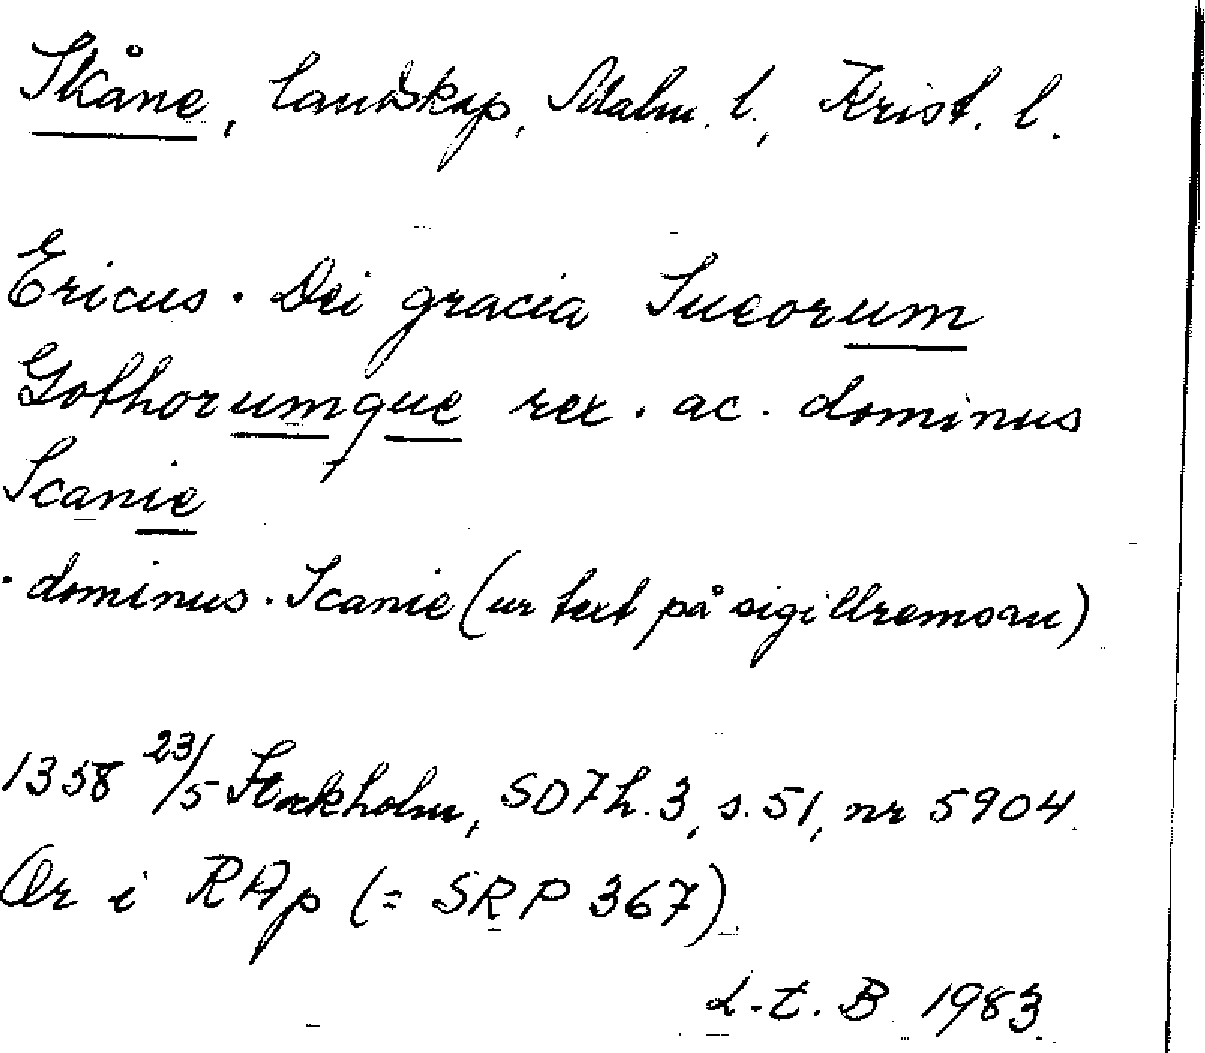 Skåne, landskap, Malm. l., Krist. l.
Ericus · Dei gracia Sueorum
Gothorumque rex · ac · dominus
Scanie
· dominus · Scanie (ur text på sigillremsan)
1358 23/5 Stockholm, SD7h.3, s.51, nr 5904
Or i RAp (= SRP 367)
L.t.B 1983